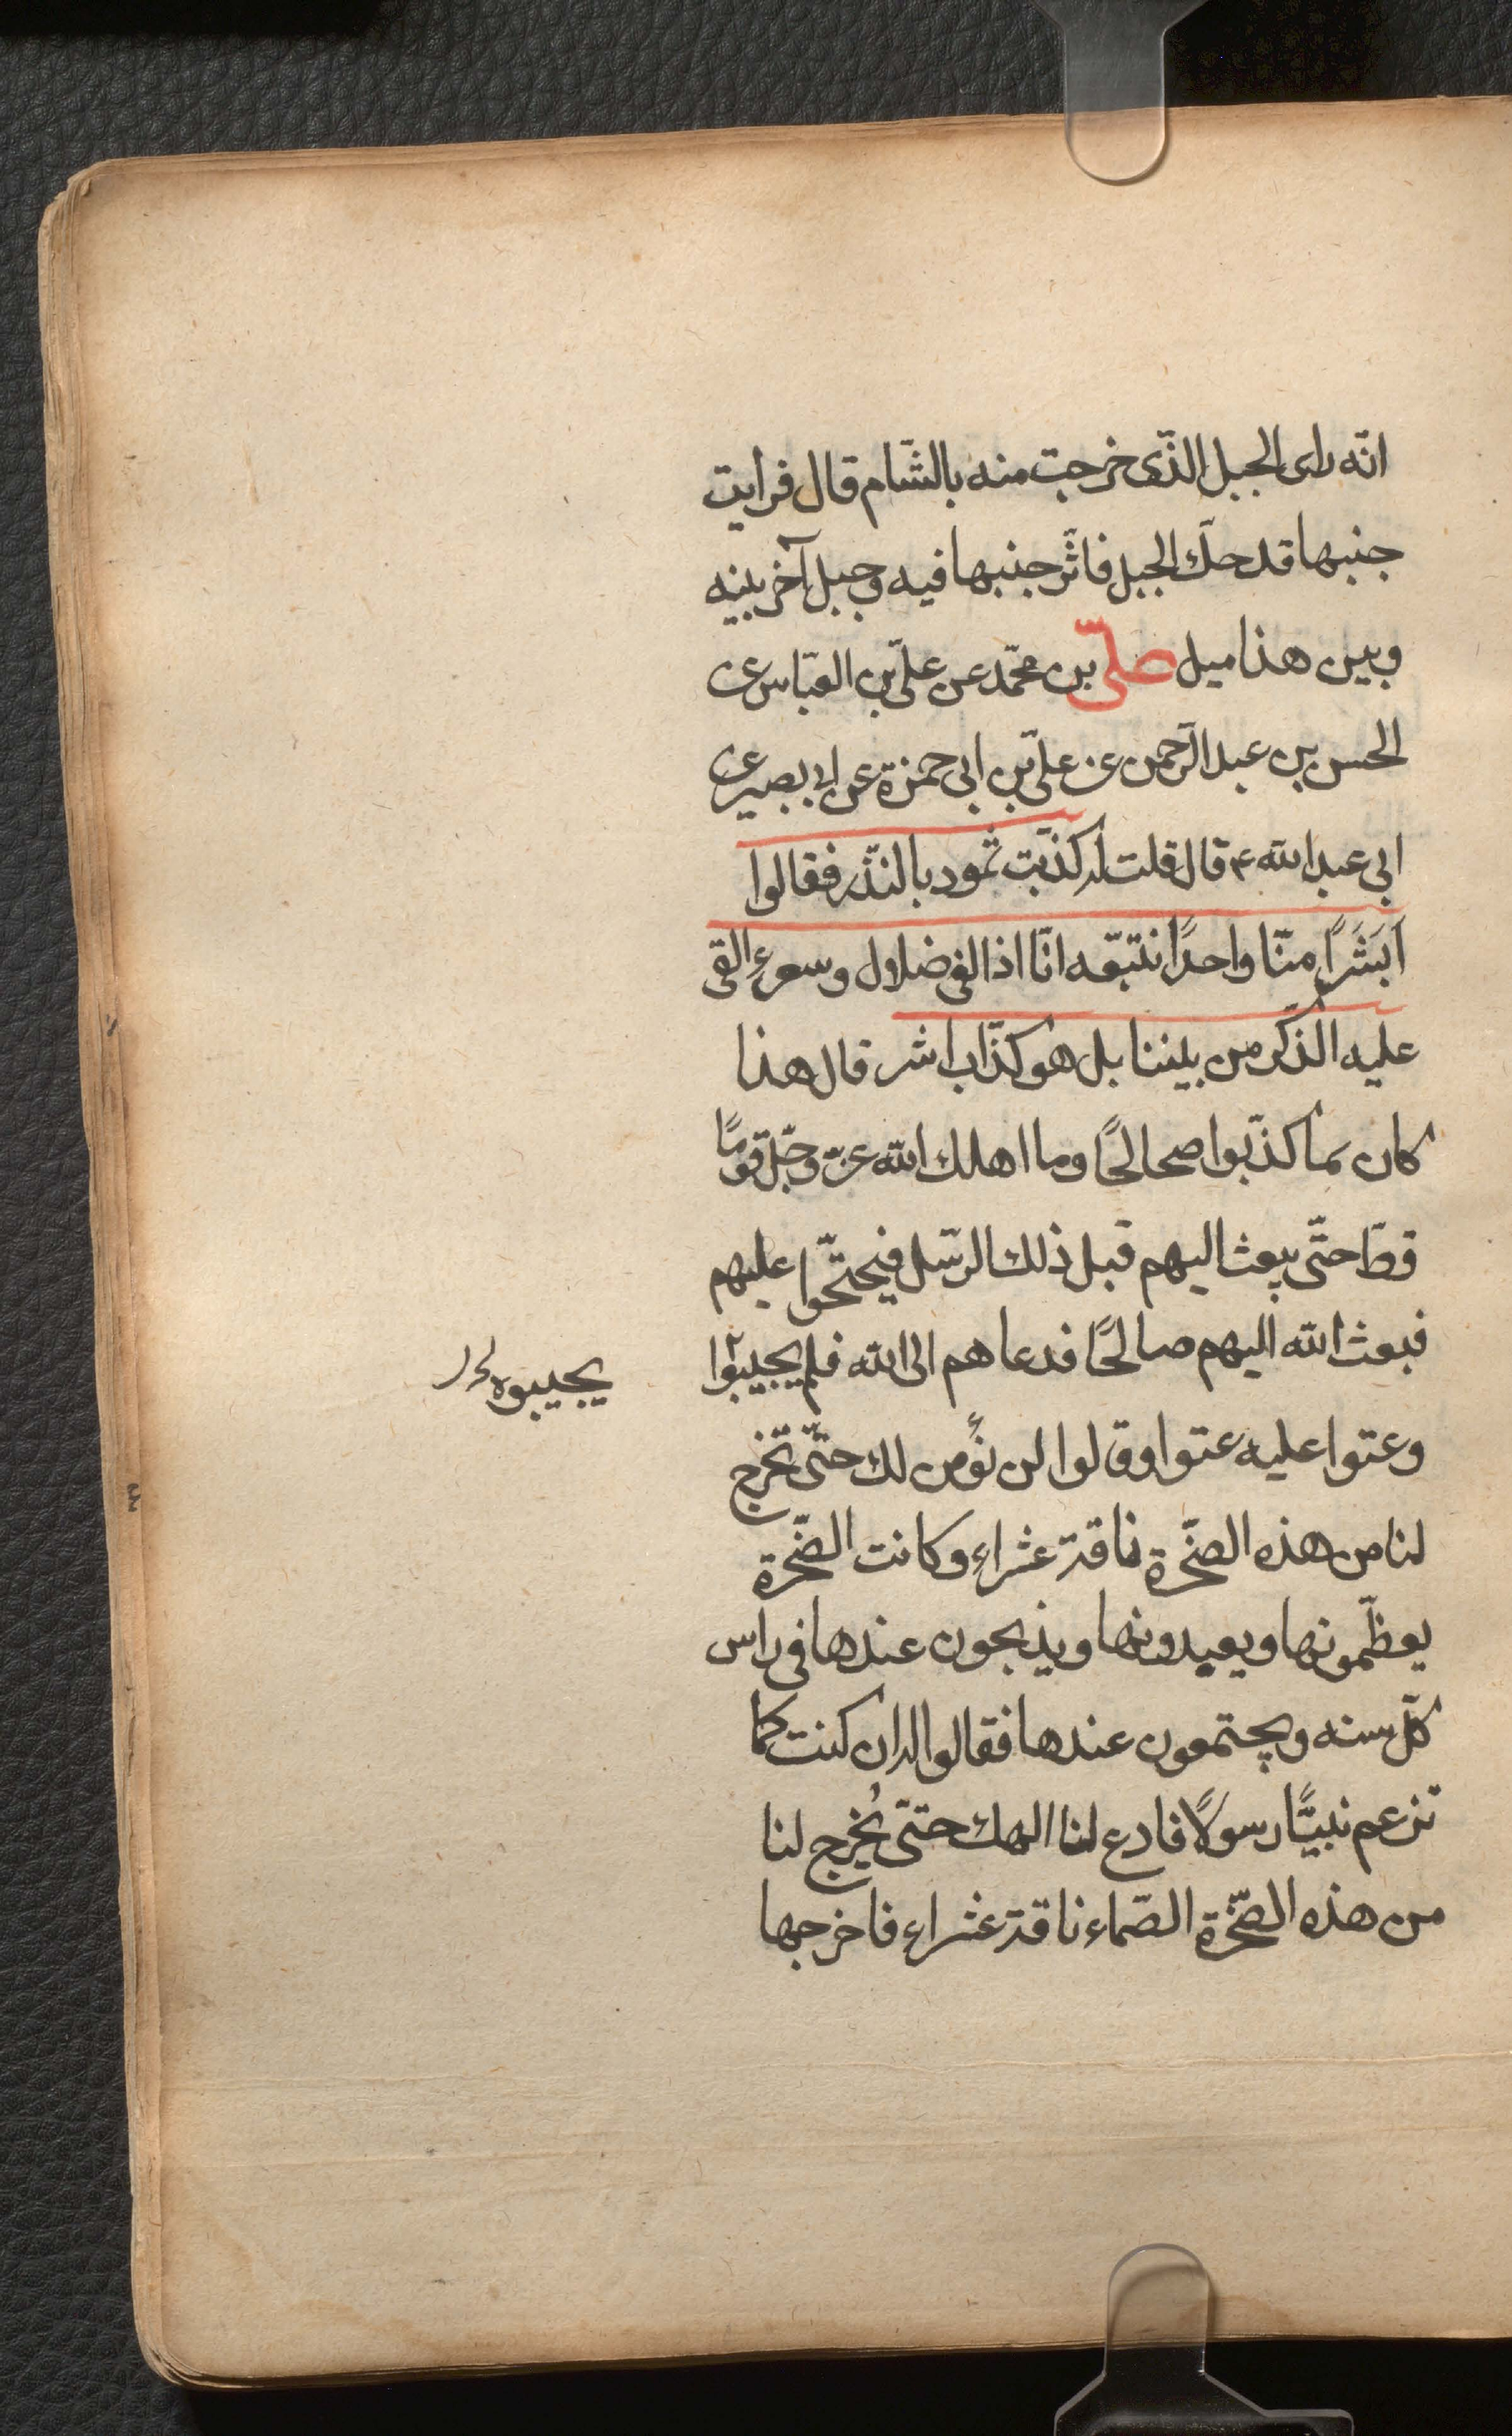 انّه رای الجبل الذّی خرجت منه بالشّام قال فرایت
جنبها قد حكّ الجبل فاثّر جنبها فیه وجبل آخر بینه
وبین هذا میل علیّ بن محمّد عن علیّ بن العبّاس عن
الحسن بن عبد الرّحمن عن علیّ بن ابی حمزة عن ابی بصیر عن
ابی عبد الله ع قال قلت له كذّبت ثمود بالنّذر فقالوا
اَبَشَرًا منّا واحدًا نتبّعه انّا اذا لفی ضلال وسعر ءالقی
علیه الذّكر من بیننا بل هو كذّاب اشر قال هذا
كان بما كذّبوا صحالحًا وما اهلك الله عزّ وجلّ قومًا
قطّ حتّی یبعث الیهم قبل ذلك الرّسل فیحتجّوا علیهم
فبعث الله الیهم صالحًا فدعاهم الی الله فلم یجیبوا
یجیبوه
وعتوا علیه عتوا وقالوا لن نؤمن لك حتّی تخرج
لنا من هذه الصّخرة ناقة عشراء وكانت الصّخرة
یعظّمونها ویعبدونها ویذبحون عندها فی راس
كلّ سنه ویجتمعون عندها فقالوا له ان كنت كما
تزعم نبیًّا رسولًا فادع لنا الهك حتّی یُخرج لنا
من هذه الصّخرة الصّماء ناقة عشراء فاخرجها